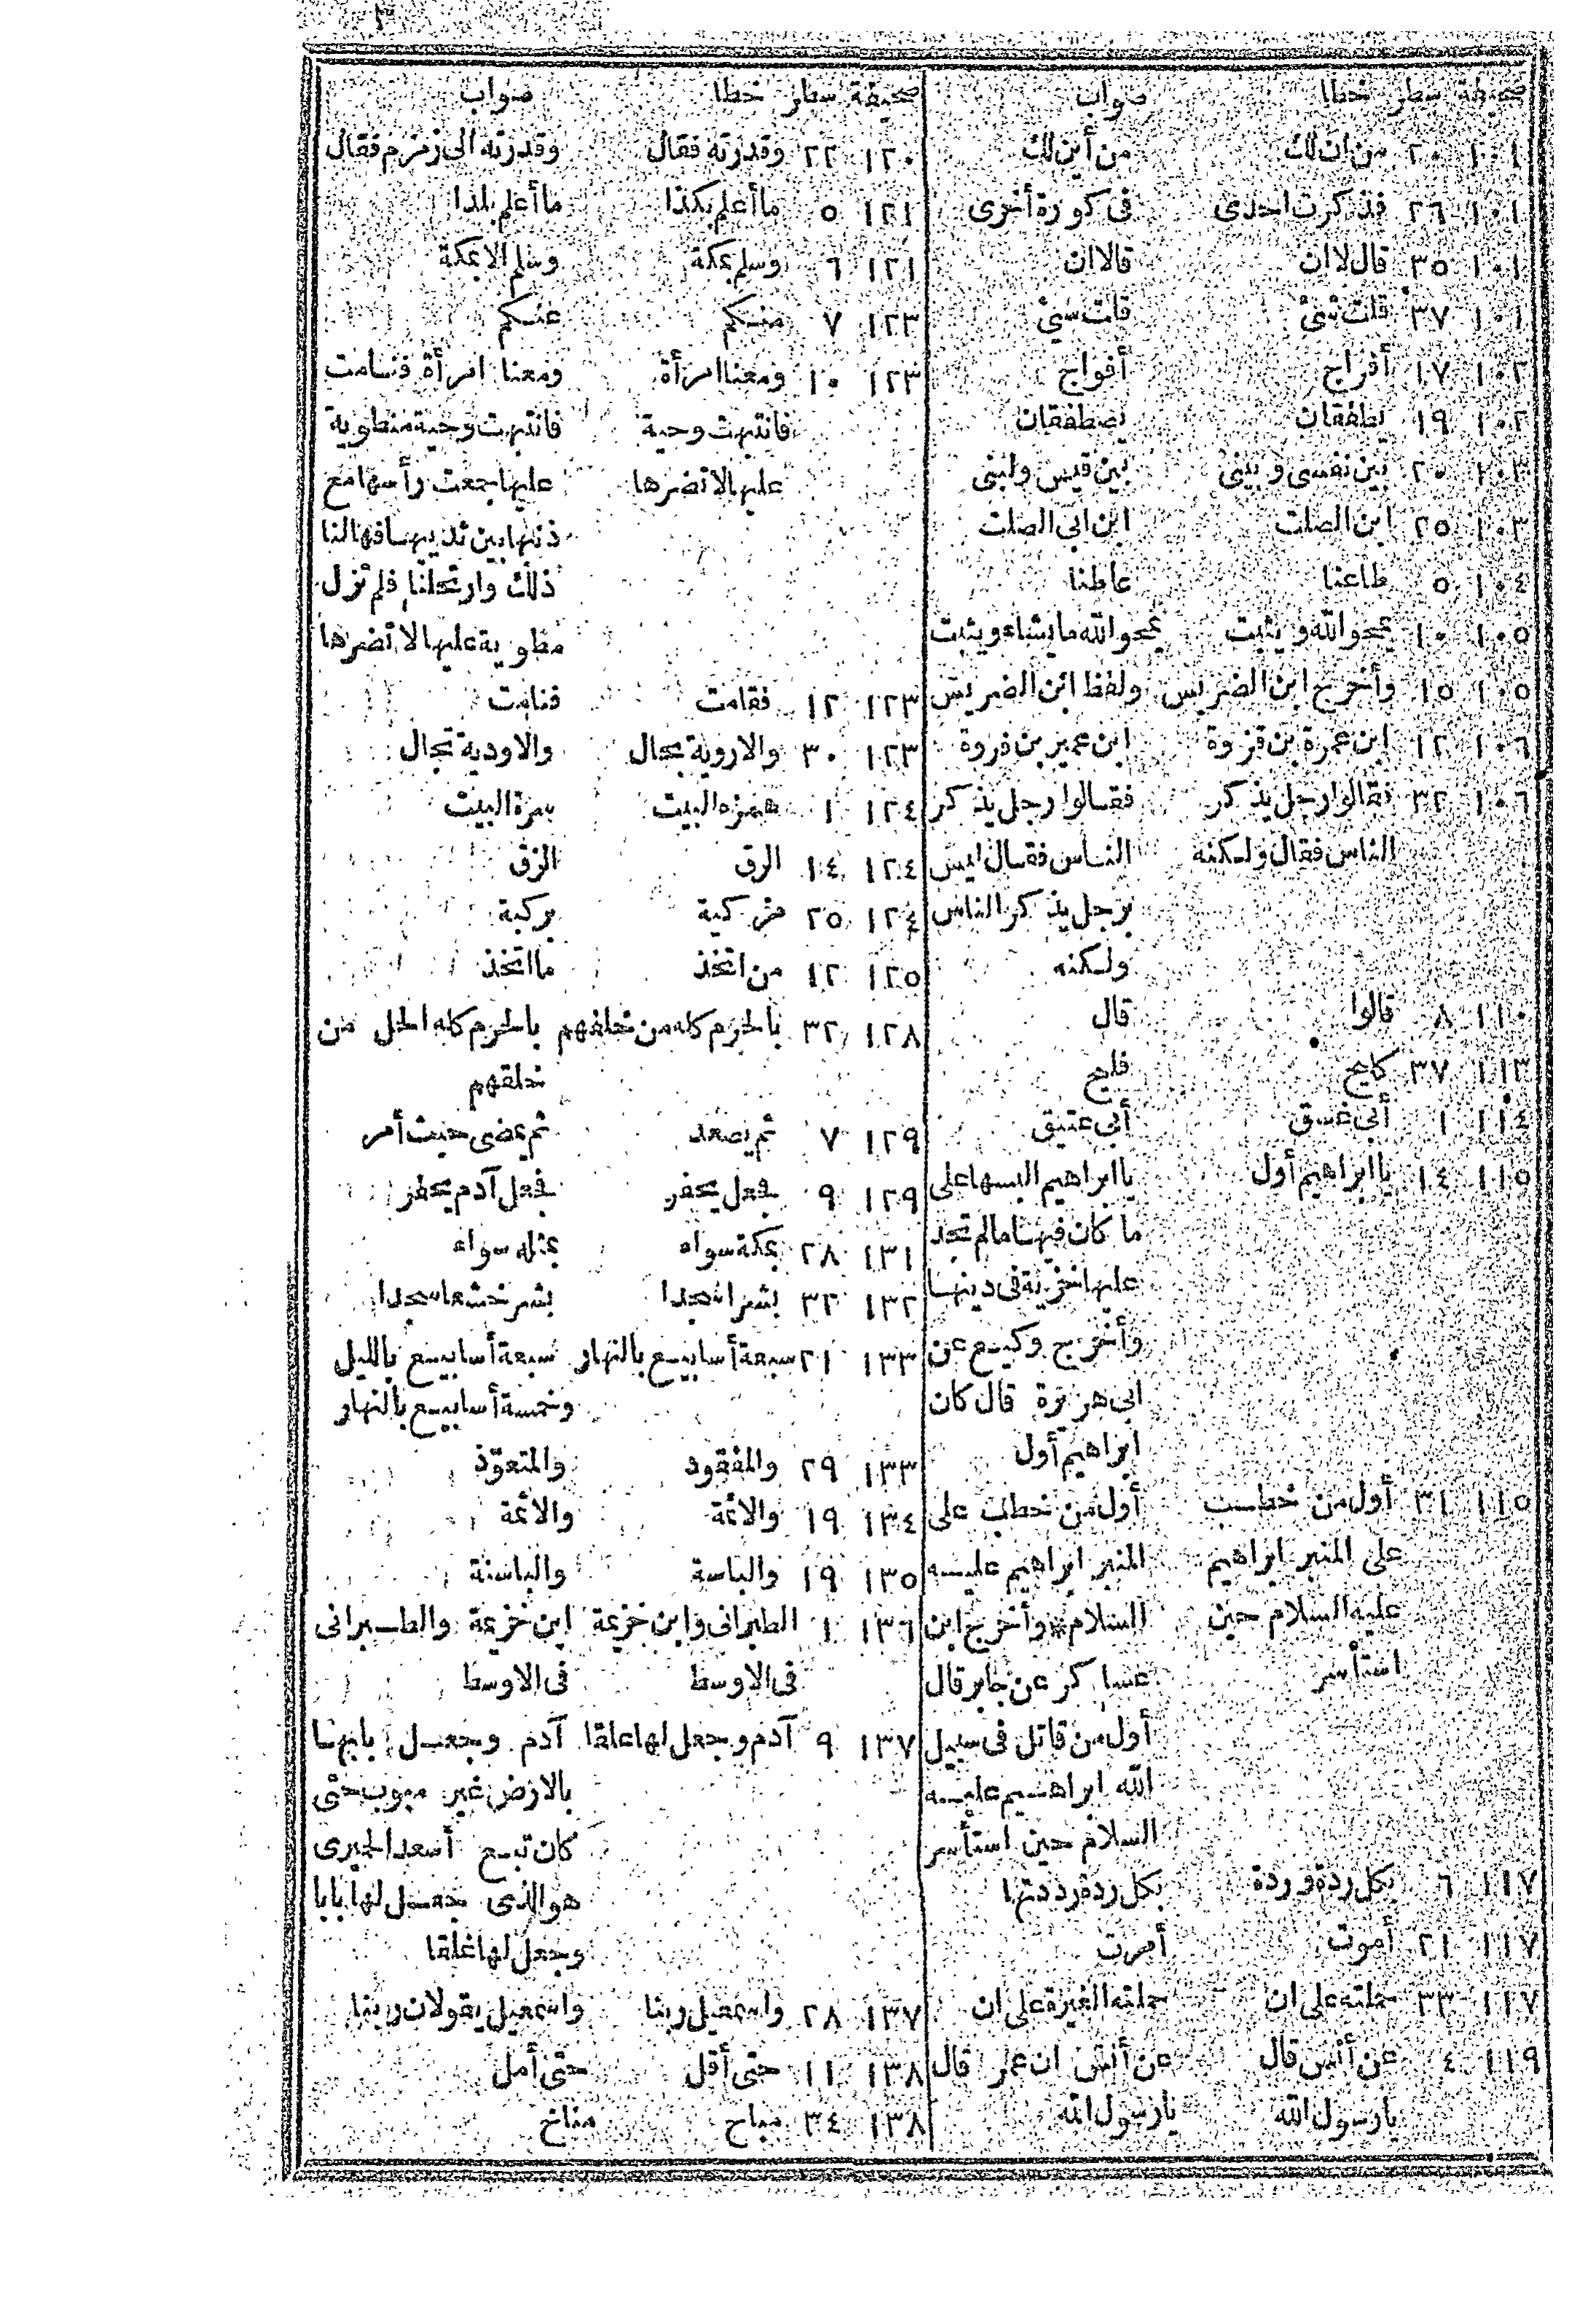 ٣
صحيفة سطر خطا صواب
١٠١ ٢٠ من ان لك من أين لك
١٠١ ٢٦ فذكرت احدى في كورة أخرى
١٠١ ٣٥ قال لا ان قالا ان
١٠١ ٣٧ قلت شئ قلت سئ
١٠٢ ١٧ أفراج أفواج
١٠٢ ١٩ تطفقان تصطفقان
١٠٢ ٢٠ بين نفسى وبينى بين قيس ولبنى
١٠٣ ٢٥ ابن الصلت ابن ابى الصلت
١٠٤ ٥ طاعنا عاطنا
١٠٥ ١٠ يمحو الله ويثبت يمحو الله ما يشاء ويثبت
١٠٥ ١٥ وأخرج ابن الضريس ولفظ ابن الضريس
١٠٦ ١٢ ابن عمرة بن قزوة ابن عمير بن فروة
١٠٦ ٣٢ فقالوا رجل يذكر فقالوا رجل يذكر
الناس فقال ولكنه الناس فقال ليس
برجل يذكر الناس
ولكنه
١١٠ ٨ قالوا قال
١١٣ ٣٧ كاج فلج
١١٤ ١ أبى عسق أبى عتيق
١١٥ ١٤ يا ابراهيم أول يا ابراهيم البسها على
ما كان فيها مالم تجد
عليها خزية فى دينها
وأخرج وكيع عن
ابى هريرة قال كان
ابراهيم أول
١١٥ ٣١ أول من خطب أول من خطب على
على المنبر ابراهيم المنبر ابراهيم عليه
عليه السلام حين السلام * وأخرج ابن
استأسر عساكر عن جابر قال
أول من قاتل فى سبيل
الله ابراهيم عليه
السلام حين استأسر
١١٧ ٦ بكل ردة وردة بكل ردة رددتها
١١٧ ٢١ أموت أمرت
١١٧ ٣٣ حملته على ان حملته الغيرة على ان
١١٩ ٤ عن أنس قال عن أنس ان عمر قال
يا رسول الله يا رسول الله
صحيفة سطر خطا صواب
١٢٠ ٢٢ وقدرته فقال وقدرته الى زمزم فقال
١٢١ ٥ ما أعلم بكذا ما أعلم بلدا
١٢١ ٦ وسلم بمكة وسلم الا بمكة
١٢٣ ٧ منكم عنكم
١٢٣ ١٠ ومعنا امرأة ومعنا امرأة فنامت
فانتبهت وحية فانتبهت وحية منطوية
عليها لا تضرها عليها جمعت رأسها مع
ذنبها بين ثدييها فهالنا
ذلك وارتحلنا فلم تزل
مطوية عليها لا تضرها
١٢٣ ١٢ فقامت فنامت
١٢٣ ٣٠ والاروية بحال والاودية تجال
١٢٤ ١ همزه البيت بهرة البيت
١٢٤ ١٤ الرق الزق
١٢٤ ٢٥ مزكية بركية
١٢٥ ١٢ من اتخذ ما اتخذ
١٢٨ ٣٢ بالحرم كله من خلفهم بالحرم كله الحل من
خلفهم
١٢٩ ٧ ثم يصعد ثم يمضى حيث أمر
١٢٩ ٩ فجعل يحفر فجعل آدم يحفر
١٣١ ٢٨ بمكة سواه بمثله سواء
١٣٢ ٣٢ بشرا سجدا بشر خشعا سجدا
١٣٣ ٢١ سبعة أسابيع بالنهار سبعة أسابيع بالليل
وخمسة أسابيع بالنهار
١٣٣ ٢٩ والمفقود والمتعوّذ
١٣٤ ١٩ والائمة والائمة
١٣٥ ١٩ والباسة والباسنة
١٣٦ ١ الطبرانى وابن خزيمة ابن خزيمة والطبرانى
فى الاوسط فى الاوسط
١٣٧ ٩ آدم وجعل لها غلقا آدم وجعل بابها
بالارض غير مبوب حتى
كان تبع أسعد الحميرى
هو الذى جعل لها بابا
وجعل لها غلقا
١٣٧ ٢٨ واسمعيل ربنا واسمعيل يقولان ربنا
١٣٨ ١١ حتى أقل حتى أمل
١٣٨ ٣٤ مباح مناخ